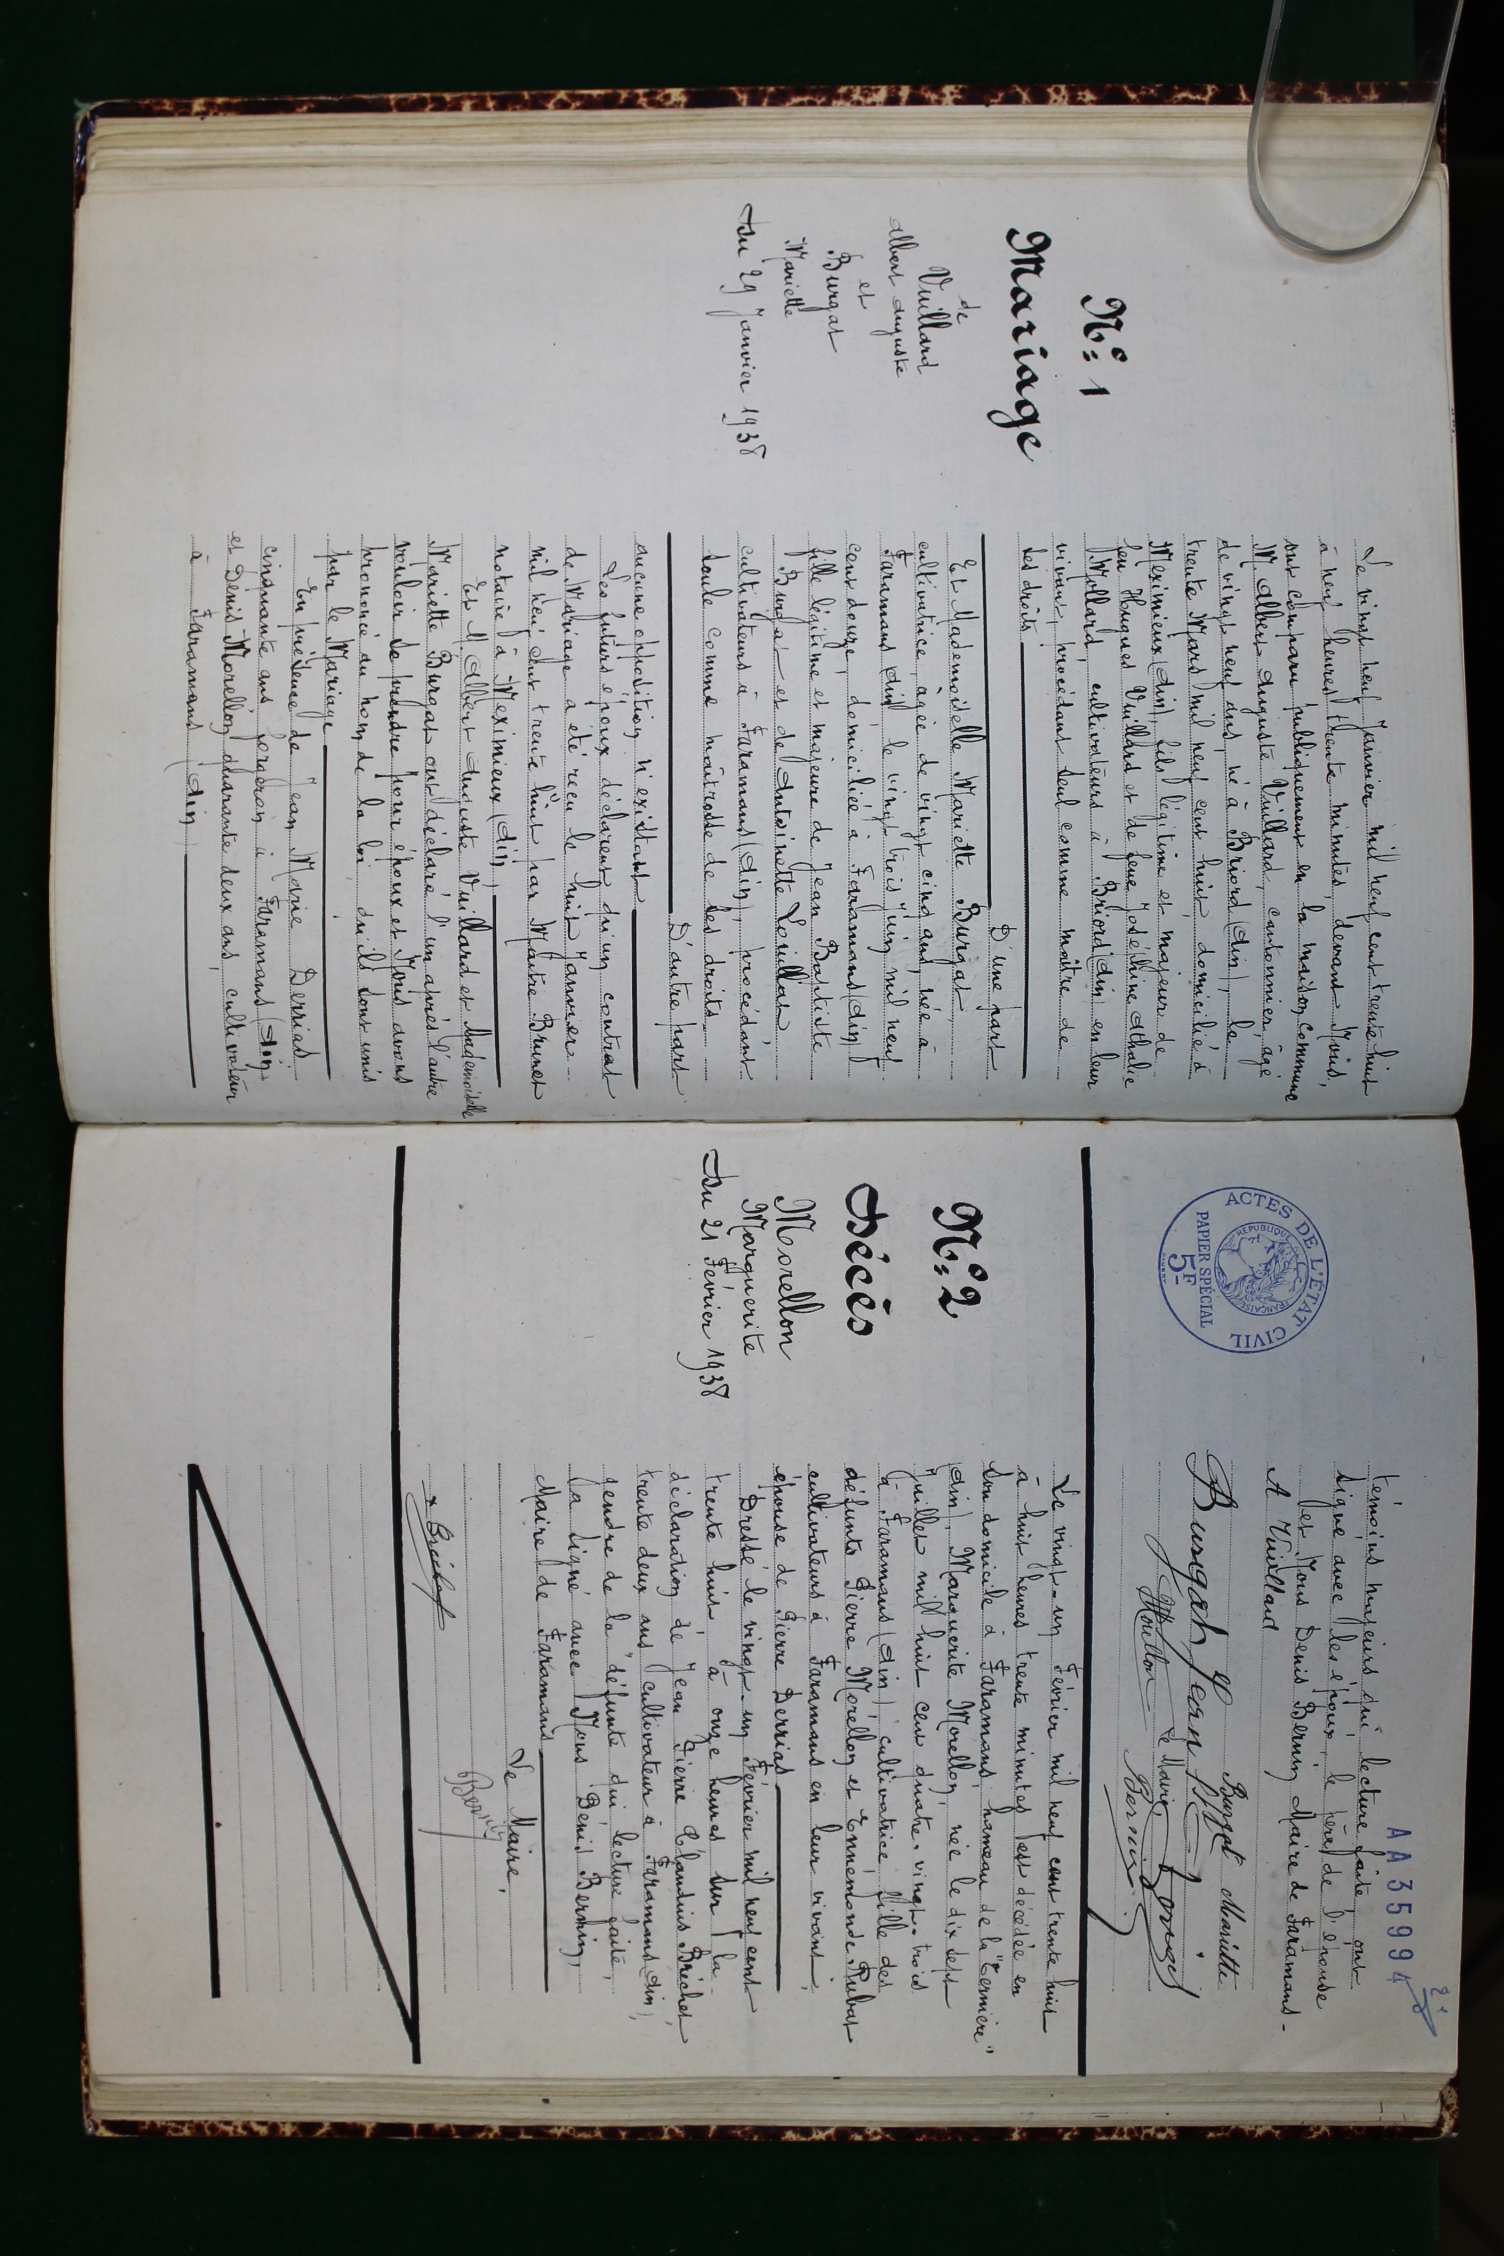 N° 1
Mariage
de
Vuillard
Albert Auguste
et
Burgat
Mariette
Du 29 Janvier 1938
Le vingt neuf Janvier mil neuf cent trente huit
à neuf heures trente minutes, devant Nous,
ont comparu publiquement en la maison commune
M. Albert Auguste Vuillard, cantonnier, âgé
de vingt neuf ans, né à Briord (Ain), le
trente Mars mil neuf cent huit, domicilié à
Meximieux (Ain), fils légitime et majeur de
feu Hugues Vuillard et de feue Joséphine Athalie
Mollard, cultivateurs à Briord (Ain) en leur
vivant, procédant seul comme maître de
ses droits
D'une part
Et Mademoiselle Mariette Burgat,
cultivatrice, âgée de vingt cinq ans, née à
Faramans (Ain) le vingt trois Juin mil neuf
cent douze, domiciliée à Faramans (Ain)
fille légitime et majeure de Jean Baptiste
Burgat et de Antoinette Louillat
cultivateurs à Faramans (Ain), procédant
seule comme maîtresse de ses droits
D'autre part
aucune opposition n'existant
Les futurs époux déclarent qu'un contrat
de Mariage a été reçu le huit Janvier
mil neuf cent trente huit par Maître Brunet
notaire à Meximieux (Ain),
Et M. Albert Auguste Vuillard et Mademoiselle
Mariette Burgat ont déclaré l'un après l'autre
vouloir se prendre pour époux et Nous avons
prononcé au nom de la loi, qu'ils sont unis
par le Mariage
En présence de Jean Marie Derrias
cinquante ans forgeron à Faramans (Ain)
et Denis Morellon quarante deux ans, cultivateur
à Faramans (Ain)
AA35994
21
témoins majeurs qui lecture faite, ont
signé avec les époux, le père de l'épouse
et Nous Denis Bernin Maire de Faramans-
A Vuillard
Burgat Mariette
Burgat Jean
Morellon
Le Maire
Bernin
ACTES DE L'ÉTAT CIVIL
RÉPUBLIQUE FRANÇAISE
PAPIER SPÉCIAL
5F
N° 2
Décès
Morellon
Marguerite
Du 21 Février 1938
Le vingt-un Février mil neuf cent trente huit
à huit heures trente minutes est décédée en
son domicile à Faramans, hameau de la "Ternière"
(Ain), Marguerite Morellon, née le dix sept
Juillet mil huit cent quatre-vingt-trois
à Faramans (Ain) cultivatrice, fille des
défunts Pierre Morellon et Ennemonde Rubat
cultivateurs à Faramans en leur vivant,
épouse de Pierre Derrias
Dressé le vingt-un Février mil neuf cent
trente huit, à onze heures sur la
déclaration de Jean Pierre Claudius Bréchet,
trente deux ans, cultivateur à Faramans (Ain),
gendre de la défunte qui, lecture faite,
l'a signé avec Nous Denis Bernin,
Maire de Faramans
Le Maire,
Bernin
Bréchet